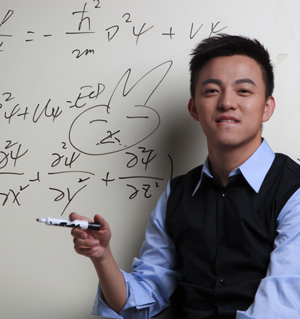 = - ħ²/2m ∇²Ψ + V
²Ψ + UΨ = EΨ
∂²Ψ/∂x² + ∂²Ψ/∂y² + ∂²Ψ/∂z² )